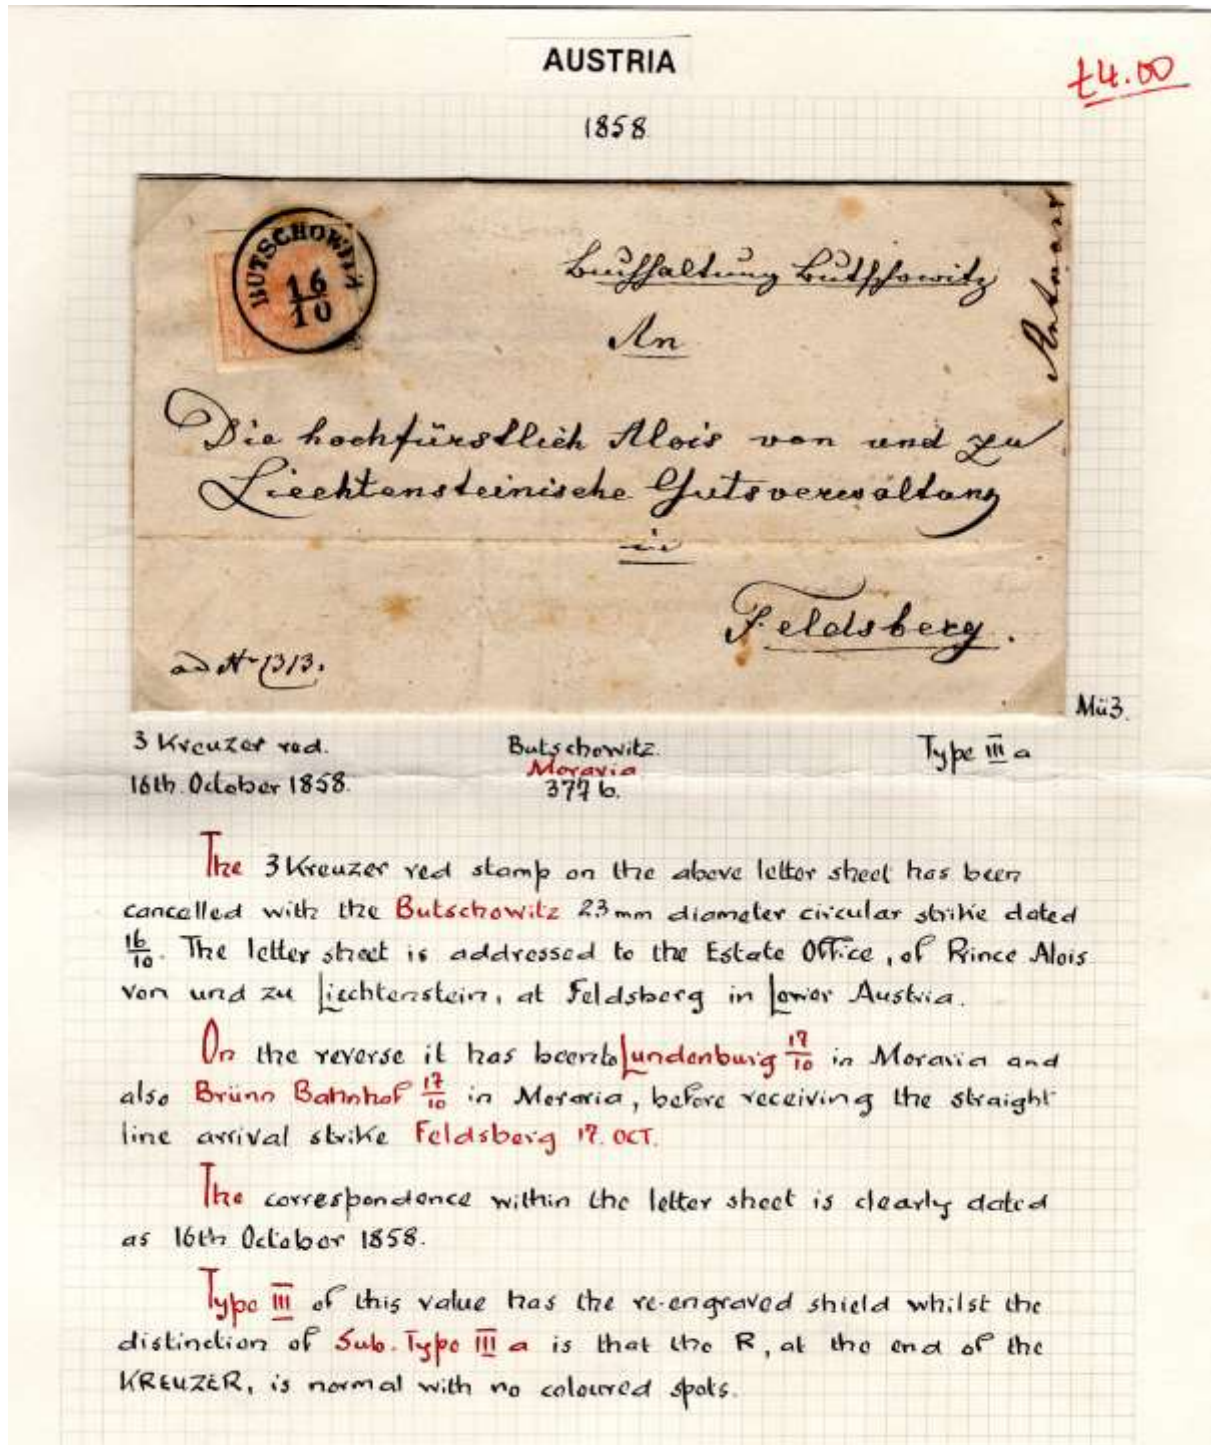 AUSTRIA
£4.00
1858
BUTSCHOWITZ
16
10
Buchhaltung Butschowitz
An
Die hochfürstlich Alois von und zu
Liechtensteinische Gutsverwaltung
in
Feldsberg.
ad Nr 1313.
Mü3.
3 Kreuzer red. Butschowitz. Type III a
Moravia
16th October 1858. 377 b.
The 3 Kreuzer red stamp on the above letter sheet has been
cancelled with the Butschowitz 23mm diameter circular strike dated
16/10. The letter sheet is addressed to the Estate Office, of Prince Alois
von und zu Liechtenstein, at Feldsberg in Lower Austria.
On the reverse it has been to Lundenburg 17/10 in Moravia and
also Brünn Bahnhof 17/10 in Moravia, before receiving the straight
line arrival strike Feldsberg 17. OCT.
The correspondence within the letter sheet is clearly dated
as 16th October 1858.
Type III of this value has the re-engraved shield whilst the
distinction of Sub. Type III a is that the R, at the end of the
KREUZER, is normal with no coloured spots.